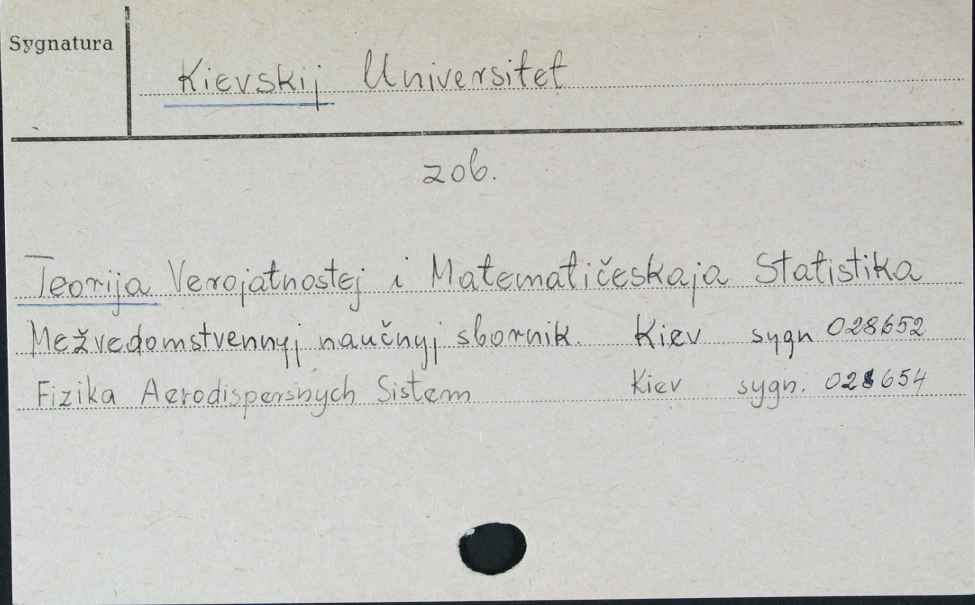 Sygnatura
Kievskij Universitet
zob.
Teorija Verojatnostej i Matematičeskaja Statistika
Mežvedomstvennyj naučnyj sbornik. Kiev sygn 028652
Fizika Aerodispersnych Sistem Kiev sygn. 028654